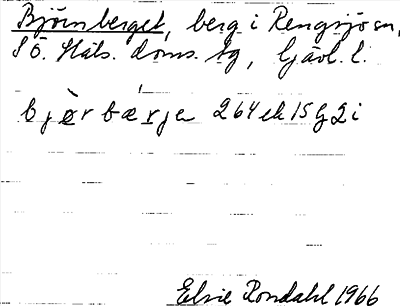 Björnberget, berg i Rengsjö sn,
SÖ. Häls. doms. tg, Gävl. l.
bjø̀rbæ̀rje 264 ek 15 G2i
Elsie Rondahl 1966